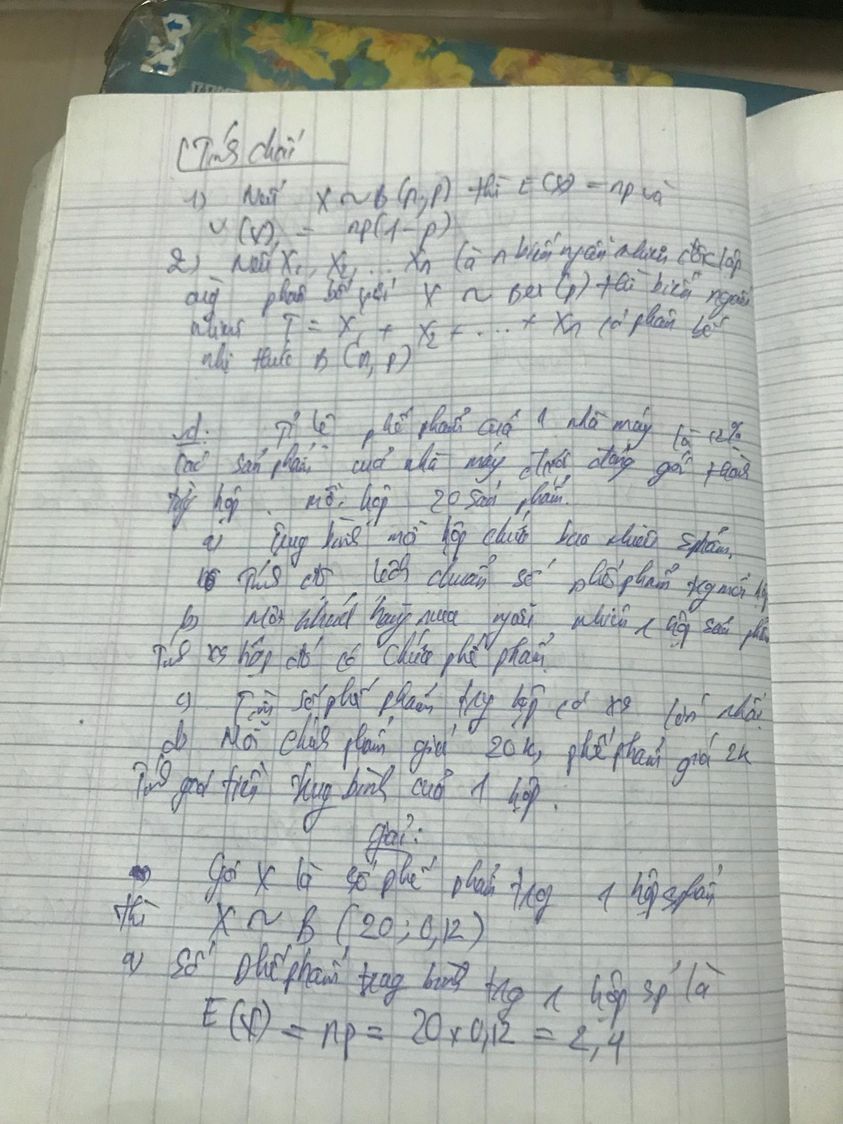 Tính chất
1) Nếu X ~ B(n,p) thì E(X) = np và
V(X) = np(1-p)
2) Nếu X1, X2, ... Xn là n biến ngẫu nhiên độc lập
cùng phân bố với X ~ Ber(p) thì biến ngẫu
nhiên T = X1 + X2 + ... + Xn có phân bố
nhị thức B(n,p)
vd: Tỉ lệ phế phẩm của 1 nhà máy là 12%
Các sản phẩm của nhà máy được đóng gói thành
từg hộp. mỗi hộp 20 sản phẩm.
a) Trung bình mỗi hộp chứa bao nhiêu sphẩm.
Tính độ lệch chuẩn số phế phẩm trg mỗi hộp
b) Một khách hàng mua ngẫu nhiên 1 hộp sản phẩm
Tính xs hộp đó có chứa phế phẩm.
c) Tìm số phế phẩm trg hộp có xs lớn nhất.
d) Mỗi chính phẩm giá 20k, phế phẩm giá 2k
Tính giá tiền trung bình của 1 hộp.
giải:
Gọi X là số phế phẩm trg 1 hộp sphẩm
thì X ~ B(20; 0,12)
a) số phế phẩm trung bình trg 1 hộp sp là
E(X) = np = 20 x 0,12 = 2,4